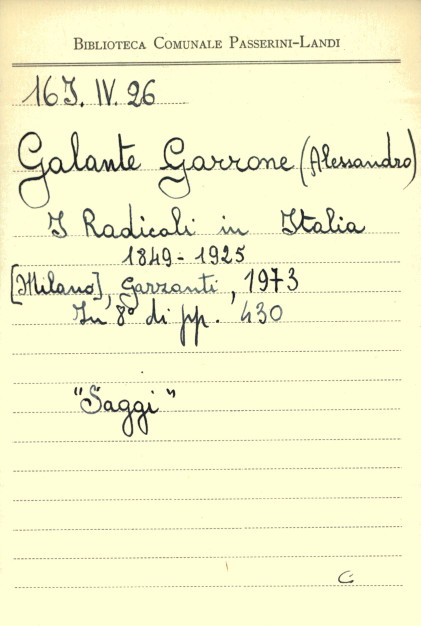 BIBLIOTECA COMUNALE PASSERINI-LANDI
16 I. IV. 26
Galante Garrone (Alessandro)
I Radicali in Italia
1849 - 1925
[Milano], Garzanti, 1973
In 8° di pp. 430
"Saggi"
G